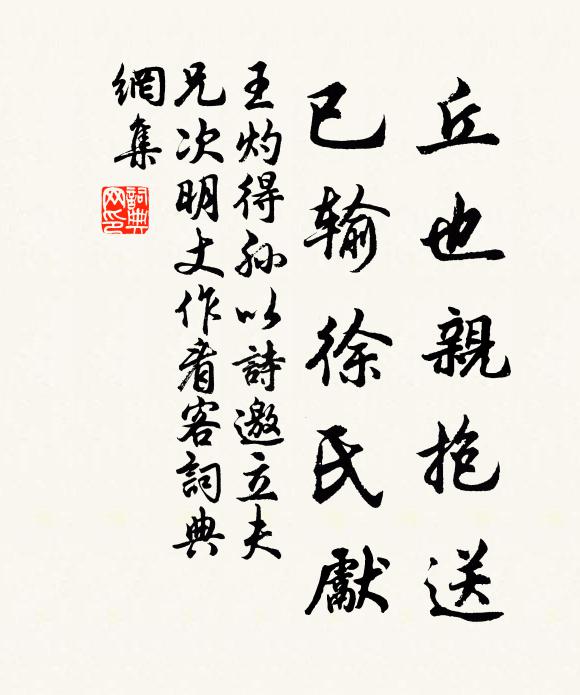 丘也親抱送
已输徐氏獻
王灼得孙以詩邀立夫
兄次明丈作者客詞典
網集
詞典网印